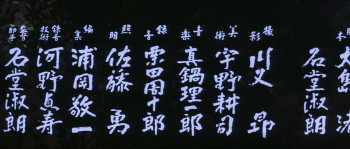 大島渚
石堂淑朗
撮影
川又昂
美術
宇野耕司
音楽
真鍋理一郎
録音
栗田周十郎
照明
佐藤勇
編集
浦岡敬一
録音技術
河野貞寿
石堂淑朗